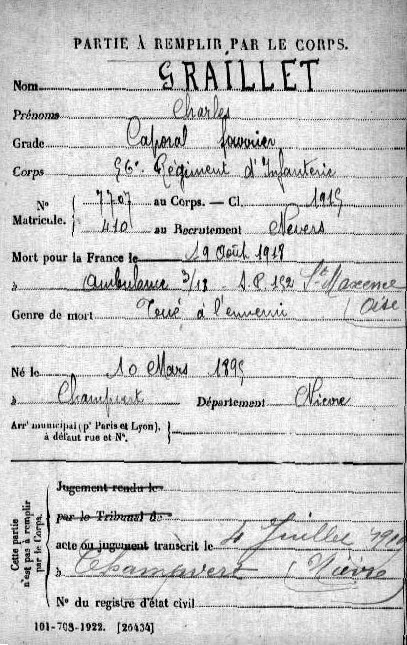 PARTIE À REMPLIR PAR LE CORPS.
Nom GRAILLET
Prénoms Charles
Grade Caporal fourrier
Corps 56e Régiment d'Infanterie
N° 7707 au Corps. — Cl. 1915
Matricule. 410 au Recrutement Nevers
Mort pour la France le 19 Août 1918
à Ambulance 3/18 - S.P. 152 Ste Maxence
(Oise
Genre de mort Tué à l'ennemi
Né le 10 Mars 1895
à Champvert Département Nièvre
Arrt municipal (pr Paris et Lyon),
à défaut rue et N°.
Cette partie n'est pas à remplir par le Corps.
Jugement rendu le
par le Tribunal de
acte ou jugement transcrit le 4 Juillet 1919
à Champvert (Nièvre)
N° du registre d'état civil
101-708-1922. [26434]